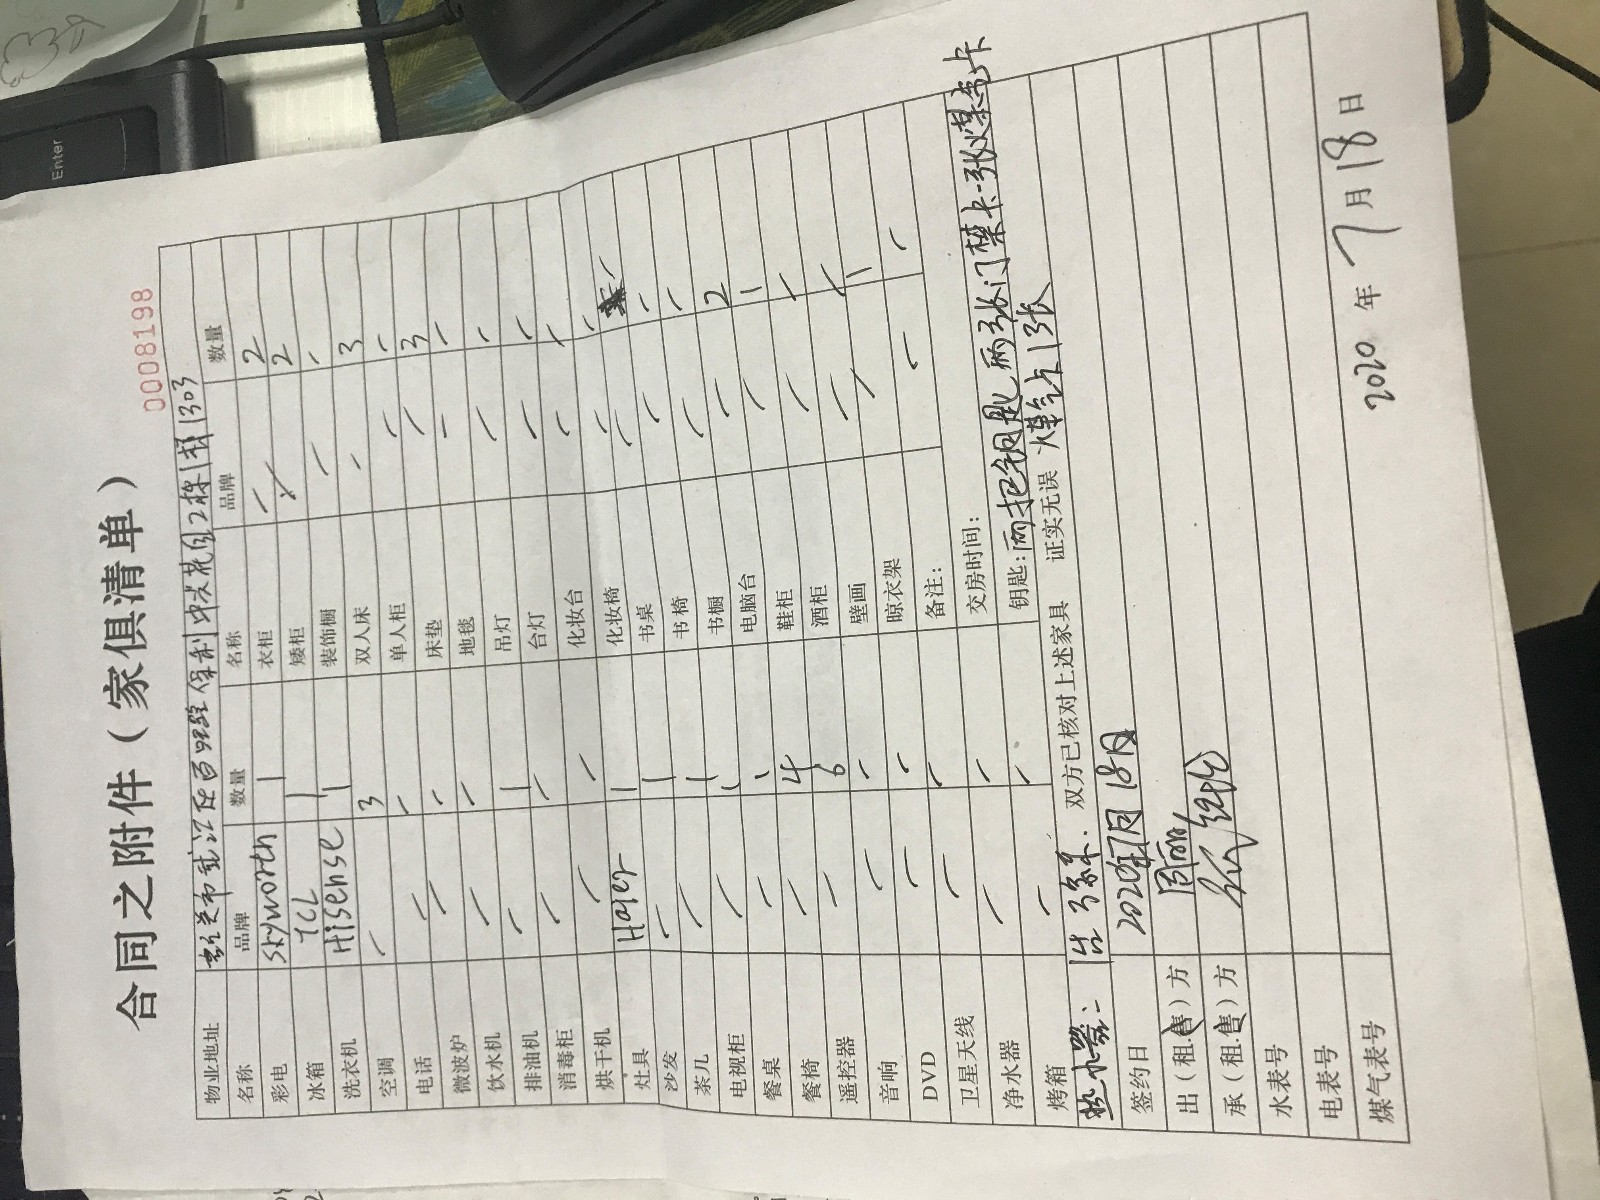 合同之附件（家俱清单）
0008198
物业地址 中央花园2栋1303
名称 品牌 数量 名称 品牌 数量
彩电 Skyworth 1 衣柜 2
冰箱 TCL 1 矮柜 2
洗衣机 Hisense 1 装饰橱
空调 3 双人床 3
电话 单人柜
微波炉 床垫 3
饮水机 地毯
排油机 1 吊灯
消毒柜 台灯
烘干机 化妆台
灶具 Haier 1 化妆椅
沙发 1 书桌
茶几 1 书椅
电视柜 书橱 2
餐桌 电脑台 1
餐椅 4 鞋柜
遥控器 6 酒柜
音响 壁画
DVD 晾衣架
卫星天线 备注：
净水器 交房时间：
烤箱 钥匙：两把钥匙两张门禁卡一张煤气卡
热水器： 双方已核对上述家具 证实无误 煤气卡1张
签约日 2020年7月18日
出（租.售）方
承（租.售）方
水表号
电表号
煤气表号
2020 年 7 月 18 日
Enter